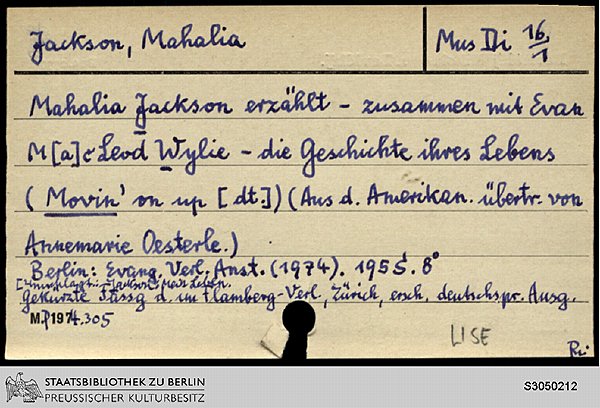 Jackson, Mahalia
Mus Di 16/1
Mahalia Jackson erzählt – zusammen mit Evan
M[a]cLeod Wylie – die Geschichte ihres Lebens
(Movin' on up [dt.]) (Aus d. Amerikan. übertr. von
Annemarie Oesterle.)
Berlin: Evang. Verl. Anst. (1974). 195 S. 8°
[Umschlagt.:] Jackson: Mein Leben.
Gekürzte Fassg d. im Flamberg-Verl., Zürich, ersch. deutschspr. Ausg.
1974.305
LISE
STAATSBIBLIOTHEK ZU BERLIN
PREUSSISCHER KULTURBESITZ
S3050212